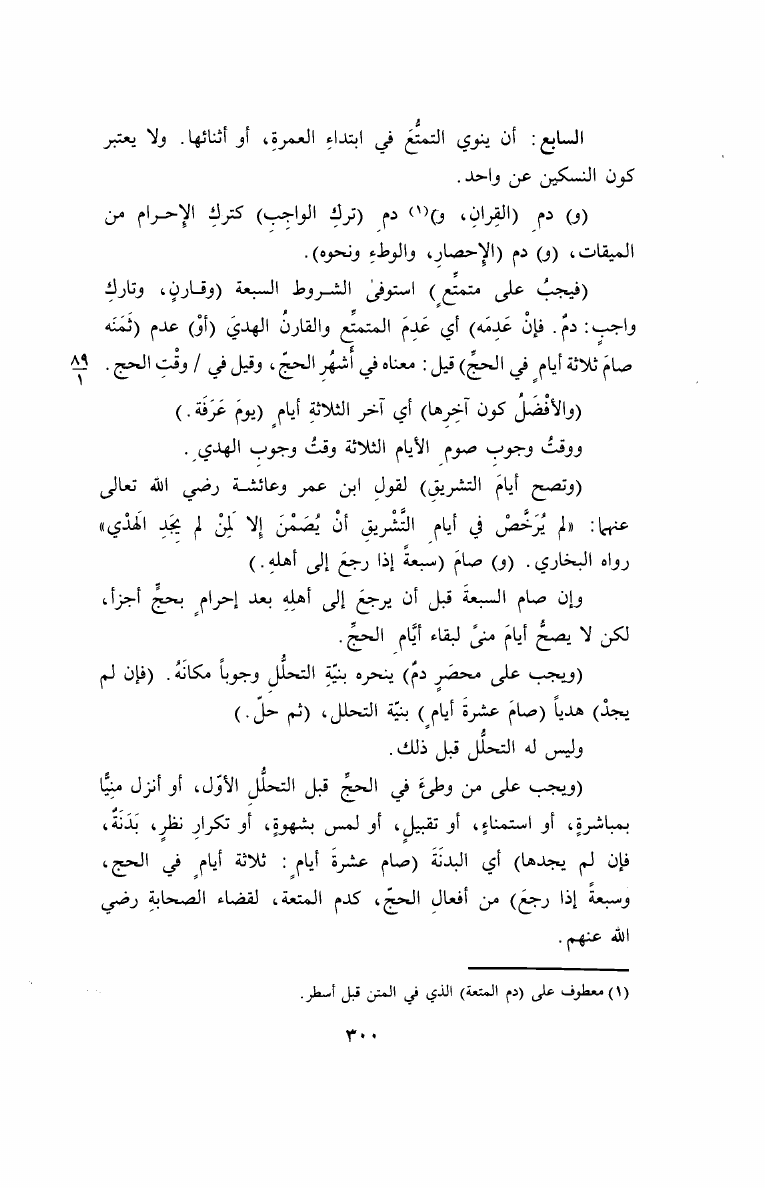 السابع: أن ينوي التمتُّعَ في ابتداءِ العمرةِ، أو أثنائها. ولا يعتبر
كون النسكين عن واحد.
(و) دم (القِرانِ، و)(١) دم (تركِ الواجِبِ) كتركِ الإحرام من
الميقات، (و) دم (الإحصارِ، والوطءِ ونحوه).
(فيجبُ على متمتِّعٍ) استوفىٰ الشروط السبعة (وقارنٍ، وتاركِ
واجبٍ: دمٌ. فإنْ عَدِمَه) أي عَدِمَ المتمتِّع والقارنُ الهديَ (أوْ) عدم (ثَمَنَه
صامَ ثلاثة أيامٍ في الحجِّ) قيل: معناه في أَشهُرِ الحجّ، وقيل في / وقْتِ الحج. ٨٩
١
(والأفْضَلُ كون آخِرِها) أي آخر الثلاثةِ أيامٍ (يومَ عَرَفَة.)
ووقتُ وجوبِ صومِ الأيام الثلاثة وقتُ وجوبِ الهدي.
(وتصح أيامَ التشريقِ) لقولِ ابن عمر وعائشة رضي الله تعالى
عنهما: «لم يُرَخَّصْ في أيامِ التَّشْريقِ أنْ يُصَمْنَ إلا لَمِنْ لم يَجِدِ الَهدْي»
رواه البخاري. (و) صامَ (سبعةً إذا رجعَ إلى أهلهِ.)
وإن صام السبعةَ قبل أن يرجعَ إلى أهلِهِ بعد إحرامٍ بحجٍّ أجزأ،
لكن لا يصحُّ أيامَ منىً لبقاء أيَّامِ الحجِّ.
(ويجب على محصَرٍ دمٌ) ينحره بنيّةِ التحلُّلِ وجوباً مكانَهُ. (فإن لم
يجدْ) هدياً (صامَ عشرةَ أيامٍ) بنيّة التحلل، (ثم حلّ.)
وليس له التحلُّل قبل ذلك.
(ويجب على من وطىءَ في الحجِّ قبل التحلُّلِ الأوّل، أو أنزل منِيًّا
بمباشرةٍ، أو استمناءٍ، أو تقبيلٍ، أو لمس بشهوةٍ، أو تكرارِ نظرٍ، بَدَنَةٌ،
فإن لم يجدها) أي البدنَة (صام عشرةَ أيامٍ: ثلاثة أيامٍ في الحج،
وسبعةً إذا رجعَ) من أفعالِ الحجّ، كدم المتعة، لقضاء الصحابةِ رضي
الله عنهم.
(١) معطوف على (دم المتعة) الذي في المتن قبل أسطر.
٣٠٠